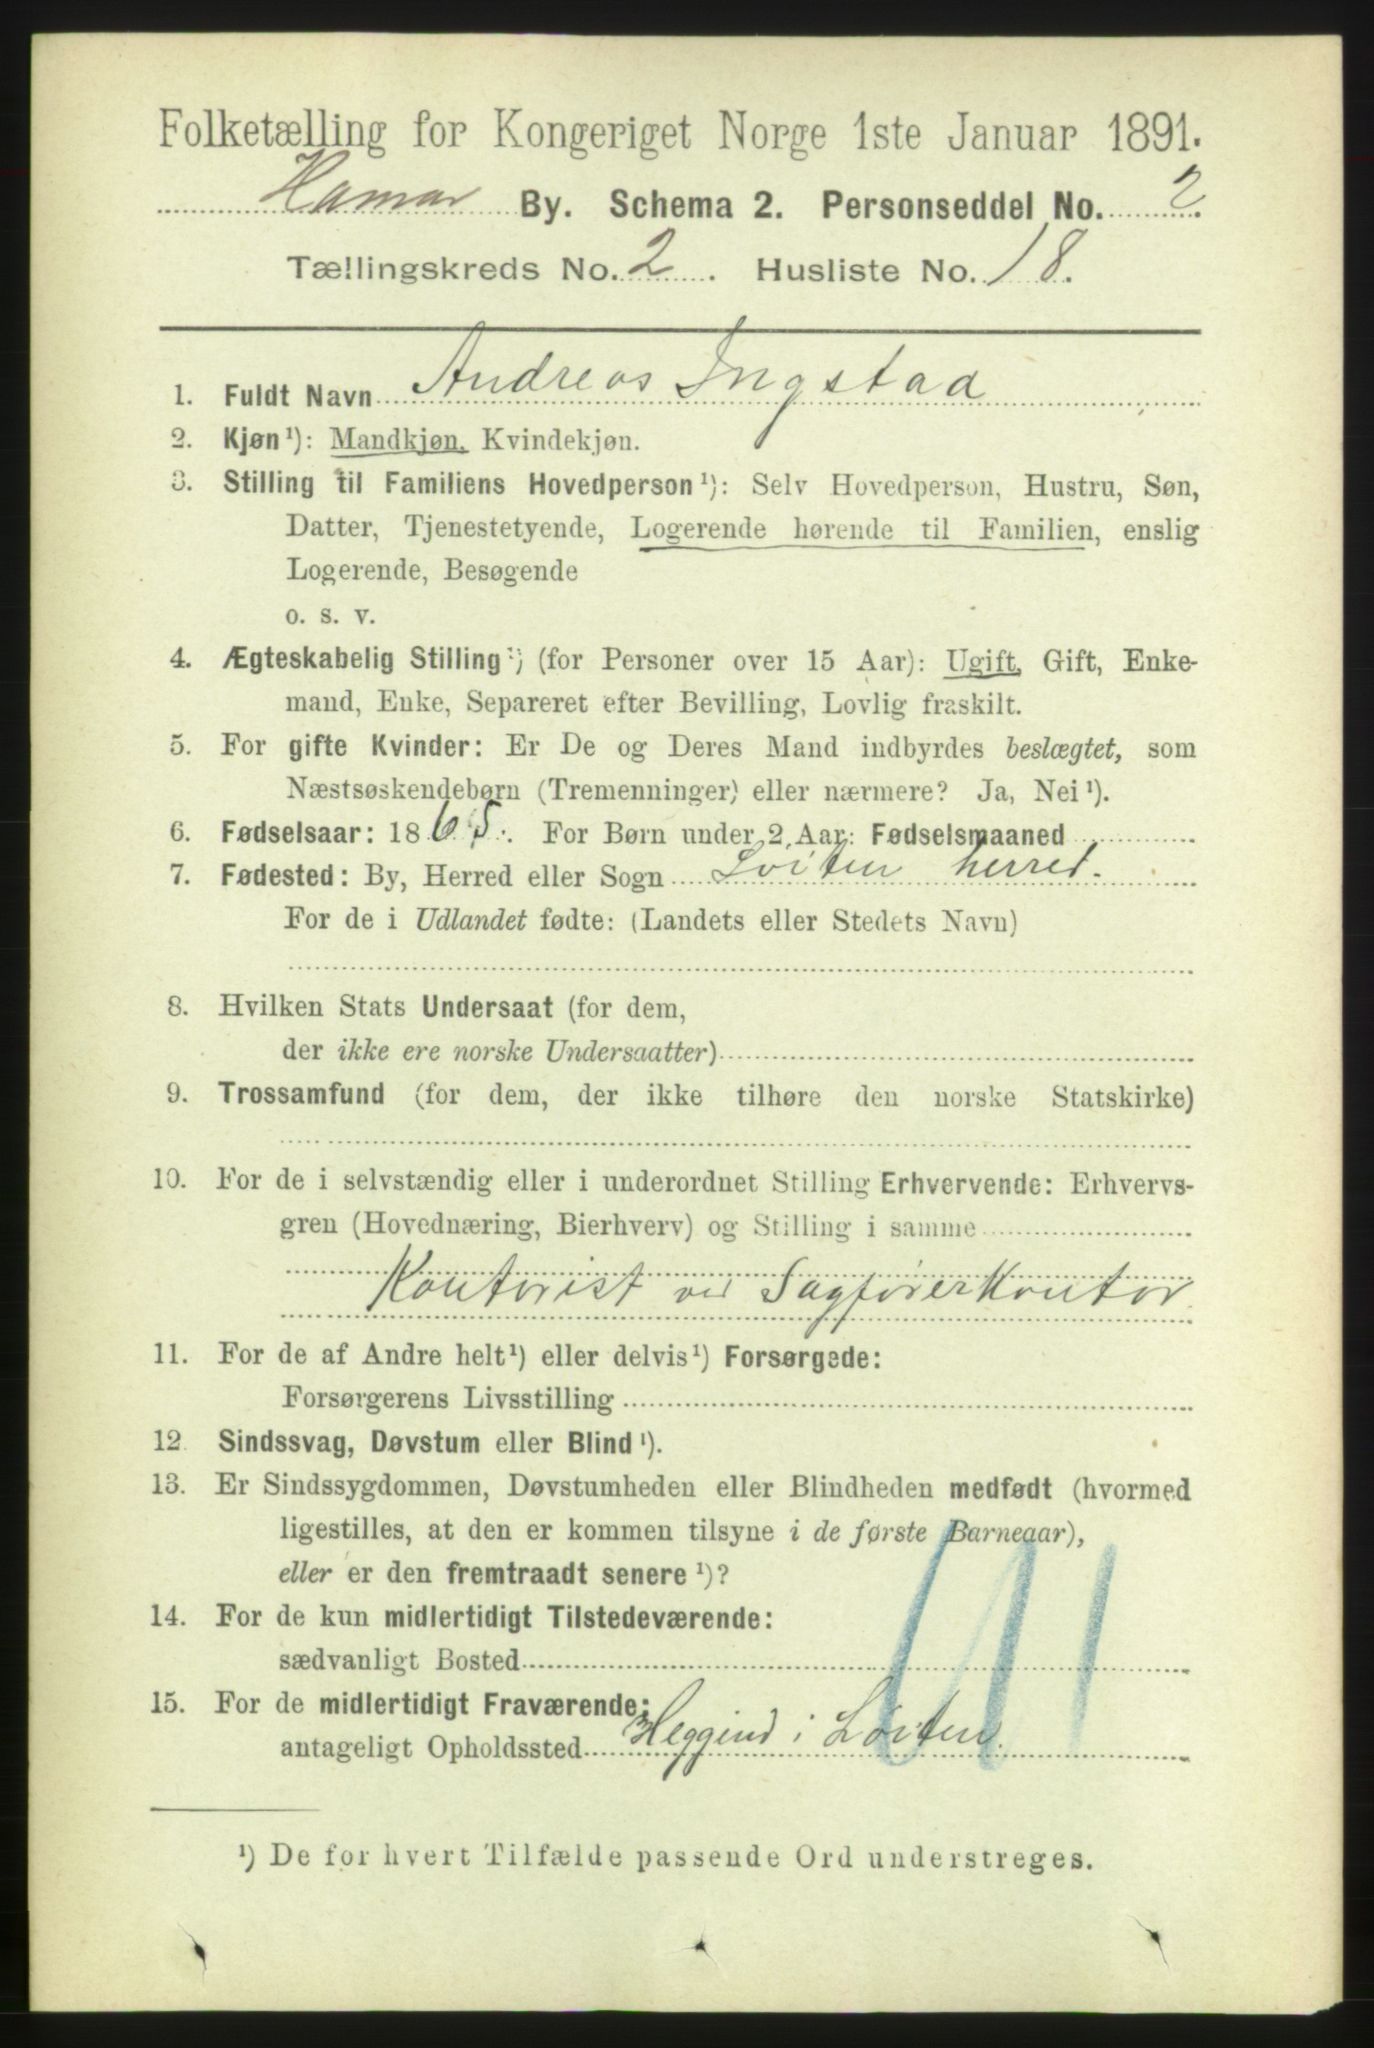 Folketælling for Kongeriget Norge 1ste Januar 1891.
Hamar By. Schema 2. Personseddel No. 2
Tællingskreds No. 2. Husliste No. 18.
1. Fuldt Navn Andreas Ingstad
2. Kjøn¹): Mandkjøn, Kvindekjøn.
3. Stilling til Familiens Hovedperson¹): Selv Hovedperson, Hustru, Søn,
Datter, Tjenestetyende, Logerende hørende til Familien, enslig
Logerende, Besøgende
o. s. v.
4. Ægteskabelig Stilling¹) (for Personer over 15 Aar): Ugift, Gift, Enke-
mand, Enke, Separeret efter Bevilling, Lovlig fraskilt.
5. For gifte Kvinder: Er De og Deres Mand indbyrdes beslægtet, som
Næstsøskendebørn (Tremenninger) eller nærmere? Ja, Nei¹).
6. Fødselsaar: 1865. For Børn under 2 Aar: Fødselsmaaned
7. Fødested: By, Herred eller Sogn Løiten herred.
For de i Udlandet fødte: (Landets eller Stedets Navn)
8. Hvilken Stats Undersaat (for dem,
der ikke ere norske Undersaatter)
9. Trossamfund (for dem, der ikke tilhøre den norske Statskirke)
10. For de i selvstændig eller i underordnet Stilling Erhvervende: Erhvervs-
gren (Hovednæring, Bierhverv) og Stilling i samme
Kontorist ved Sagførerkontor
11. For de af Andre helt¹) eller delvis¹) Forsørgede:
Forsørgerens Livsstilling
12. Sindssvag, Døvstum eller Blind¹).
13. Er Sindssygdommen, Døvstumheden eller Blindheden medfødt (hvormed
ligestilles, at den er kommen tilsyne i de første Barneaar),
eller er den fremtraadt senere¹)?
14. For de kun midlertidigt Tilstedeværende:
sædvanligt Bosted
15. For de midlertidigt Fraværende:
antageligt Opholdssted i Løiten.
¹) De for hvert Tilfælde passende Ord understreges.